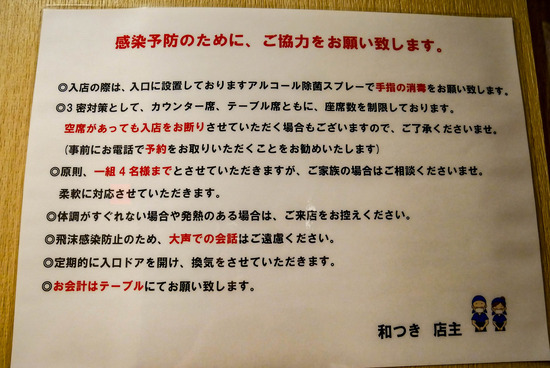 感染予防のために、ご協力をお願い致します。
◎入店の際は、入口に設置しておりますアルコール除菌スプレーで手指の消毒をお願い致します。
◎3密対策として、カウンター席、テーブル席ともに、座席数を制限しております。
空席があっても入店をお断りさせていただく場合もございますので、ご了承くださいませ。
(事前にお電話で予約をお取りいただくことをお勧めいたします)
◎原則、一組4名様までとさせていただきますが、ご家族の場合はご相談くださいませ。
柔軟に対応させていただきます。
◎体調がすぐれない場合や発熱のある場合は、ご来店をお控えください。
◎飛沫感染防止のため、大声での会話はご遠慮ください。
◎定期的に入口ドアを開け、換気をさせていただきます。
◎お会計はテーブルにてお願い致します。
和つき 店主